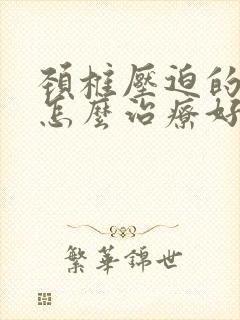 頸椎壓迫的
怎麼治療好
繁華錦世